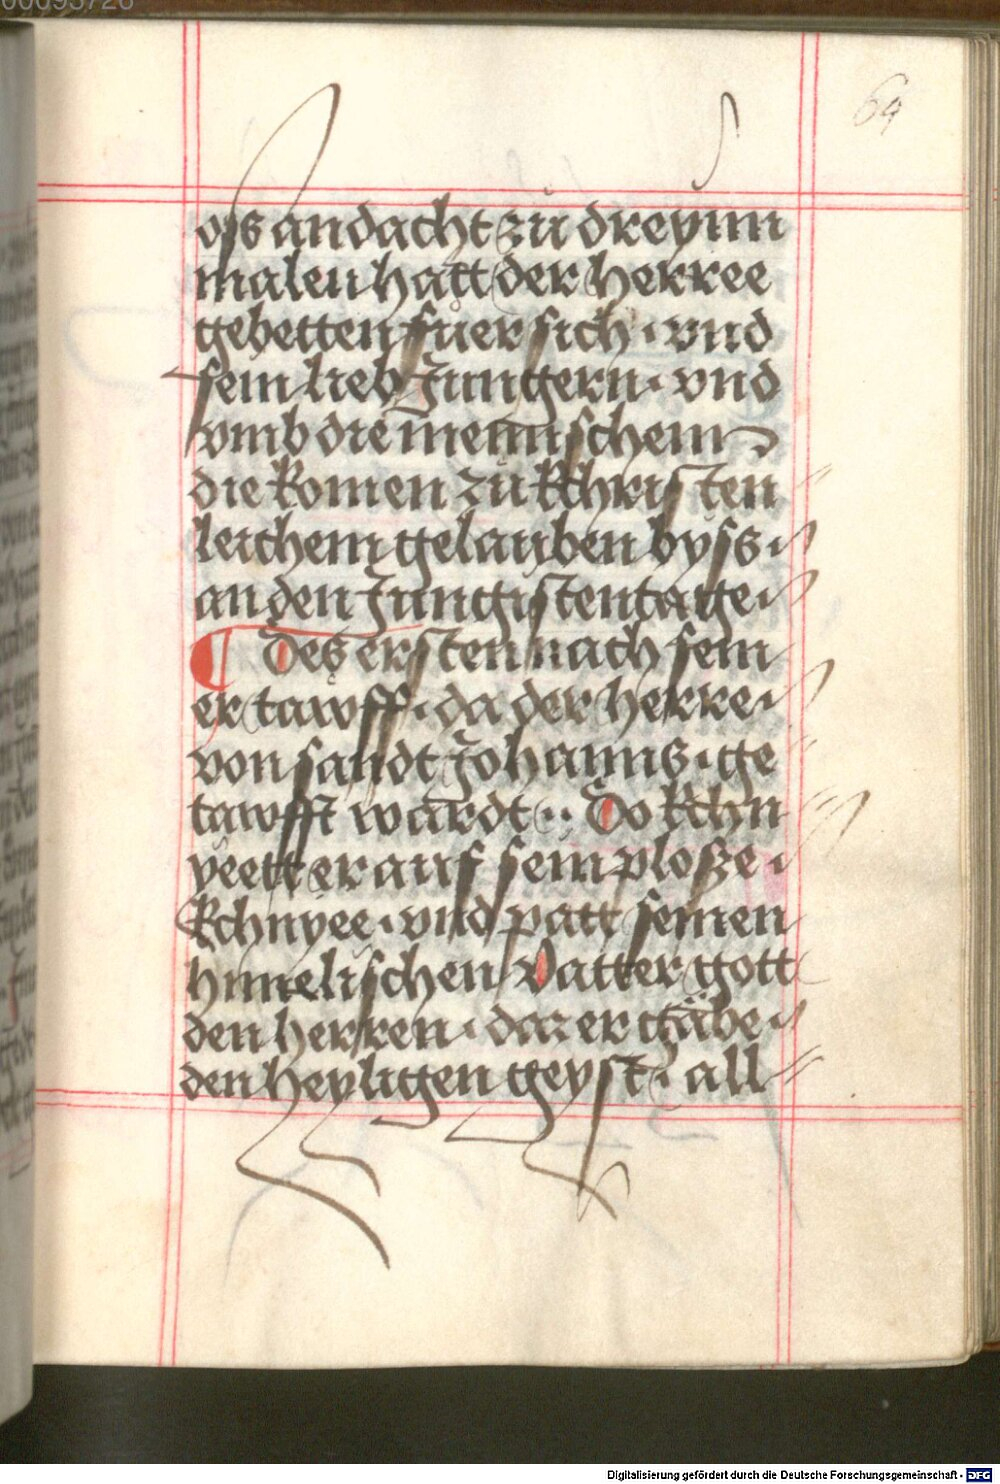 00095726
69
oss andacht zu dreynn
malen hatt der herree
gebetten fuer sich · vnd
sein lieb Jungern · vnd
vmb die mennschenn
die komen zu kchristen
leichem gelauben byss
an den Jungisten tage
¶ Des ersten nach sein
er tawff · da der herre
von sandt Johanns · ge
tawfft wardt · Do kchn
yeett er auf sein plosze
kchnyee · vnd patt seinen
himelischen Vatter gott
den herren · daz er gäbe
den heyligen geyst · all
Digitalisierung gefördert durch die Deutsche Forschungsgemeinschaft - DFG